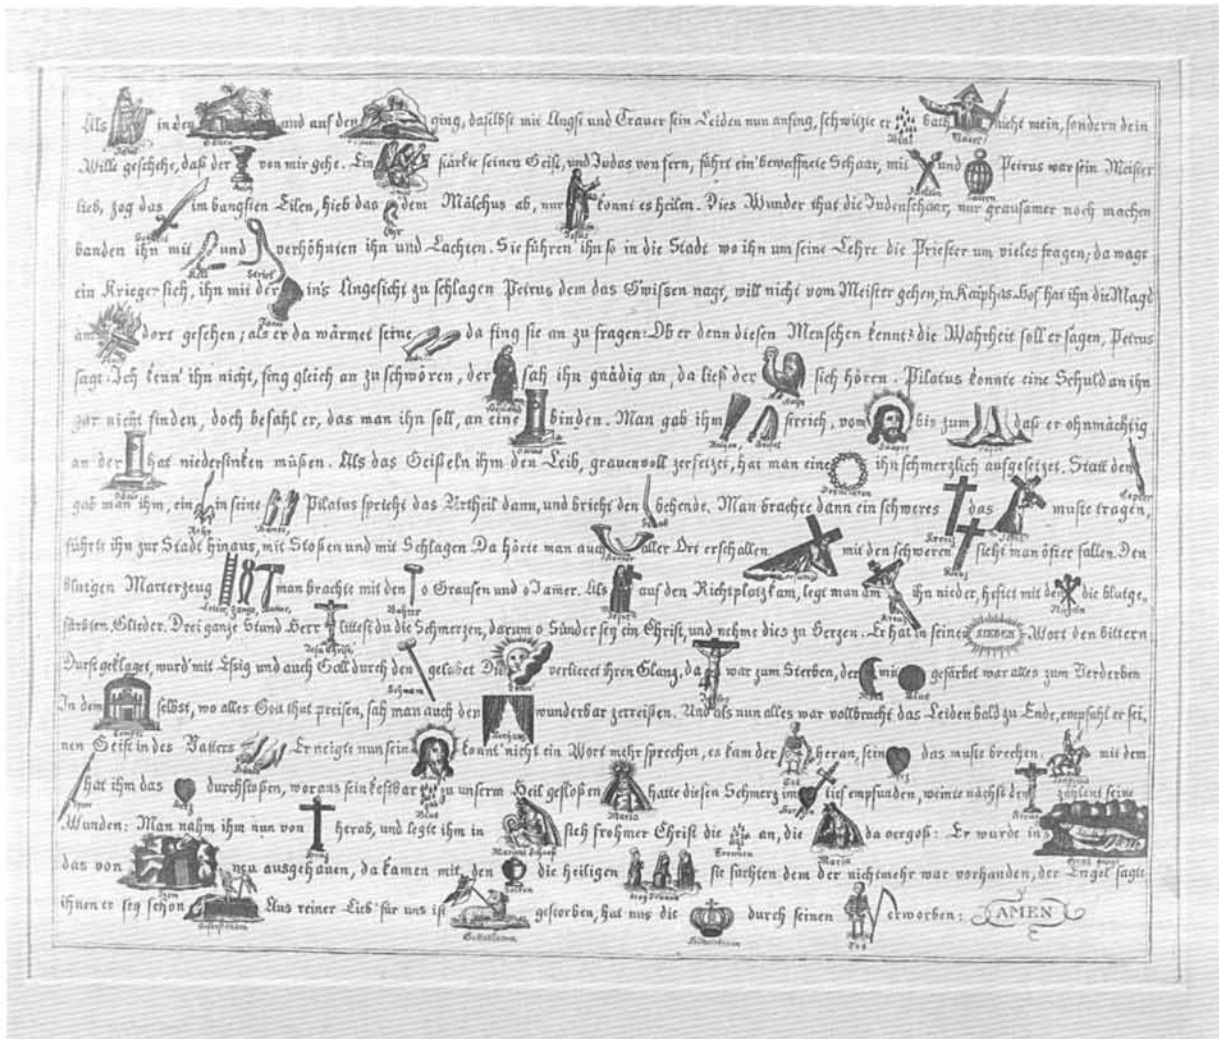 Als Jesus in den Garten und auf den ging, daselbst mit Angst und Trauer sein Leiden nun anfing, schwitzte er Blut bath Vater nicht mein, sondern dein
Wille geschehe, daß der Kelch von mir gehe. Ein Engel stärkte seinen Geist, und Judas von fern, führt ein' bewaffnete Schaar, mit Fackeln und Latern Petrus war sein Meister
lieb, zog das Schwerd im bangsten Eilen, hieb das Ohr dem Mälchus ab, nur Jesus konnt es heilen. Dies Wunder that die Judenschaar, nur grausamer noch machen
banden ihn mit Kett und Strick verhöhnten ihn und Lachten. Sie führen ihn so in die Stadt wo ihn um seine Lehre die Priester um vieles fragen; da wagt
ein Krieger sich, ihn mit der in's Angesicht zu schlagen Petrus dem das G'wissen nagt, will nicht vom Meister gehen, in Kaiphas Hof hat ihn die Magd
am dort gesehen; als er da wärmet seine da fing sie an zu fragen: Ob er denn diesen Menschen kennt? die Wahrheit soll er sagen, Petrus
sagt: Ich kenn' ihn nicht, fing gleich an zu schwören, der Heiland sah ihn gnädig an, da ließ der Hahn sich hören. Pilatus konnte eine Schuld an ihn
gar nicht finden, doch befahl er, das man ihn soll, an eine Säule binden. Man gab ihm Ruthen, Geisel streich, vom Haupt bis zum Füßen daß er ohnmächtig
an der Säule hat niedersinken müßen. Als das Geißeln ihm den Leib, grauenvoll zersetzet, hat man eine Dornenkron ihn schmerzlich aufgesetzet. Statt den Cepter
gab man ihm, ein Rohr in seine Hände, Pilatus spricht das Urtheil dann, und bricht den Stab behende. Man brachte dann ein schweres Kreuz das Jesus muste tragen,
führte ihn zur Stadt hinaus, mit Stoßen und mit Schlagen Da hörte man auch Hörner aller Ort erschallen mit den schweren Kreuz sieht man öfter fallen. Den
blut'gen Marterzeug Leiter, Zange, Hamer, man brachte mit den Bohrer o Grausen und o Jamer. Als Jesus auf den Richtplatz kam, legt man am Kreuz ihn nieder, heftet mit den Nägeln die blutge,
färbten, Glieder. Drei ganze Stund Herr Jesu Christ, littest du die Schmerzen, darum o Sünder sey ein Christ, und nehme dies zu Herzen. Er hat in seinen SIEBEN Wort den bittern
Durst geklaget, wurd' mit Essig und auch Gall durch den Schwam gelabet Die Sonn' verlieret ihren Glanz, da war zum Sterben, der Mond mit Blut gefärbet war alles zum Verderben
In dem Tempel selbst, wo alles Gott that preisen, sah man auch den Vorhang wunderbar zerreißen. Und als nun alles war vollbracht das Leiden bald zu Ende, empfahl er sei,
nen Geist in des Vatters Hände Er neigte nun sein konnt' nicht ein Wort mehr sprechen, es kam der Tod heran, sein Herz das muste brechen. mit dem
Speer hat ihm das Herz durchstoßen, woraus sein kostbar Blut zu unserm Heil gefloßen Maria hatte diesen Schmerz im Herzen tief empfunden, weinte nächst den Kreuz zählent seine
Wunden: Man nahm ihm nun von Kreuz herab, und legte ihm in Mariens Schooß sieh frohmer Christ die Threnen an, die Maria da vergoß: Er wurde in's Grab gelegt
das von Stein neu ausgehauen, da kamen mit, den Salben die heiligen drey Frauen sie suchten dem der nichtmehr war vorhanden, der Engel sagte
ihnen er sey schon Auferstanden Aus reiner Lieb' für uns ist Gotteslamm gestorben, hat uns die Himelskron durch seinen Tod erworben: AMEN